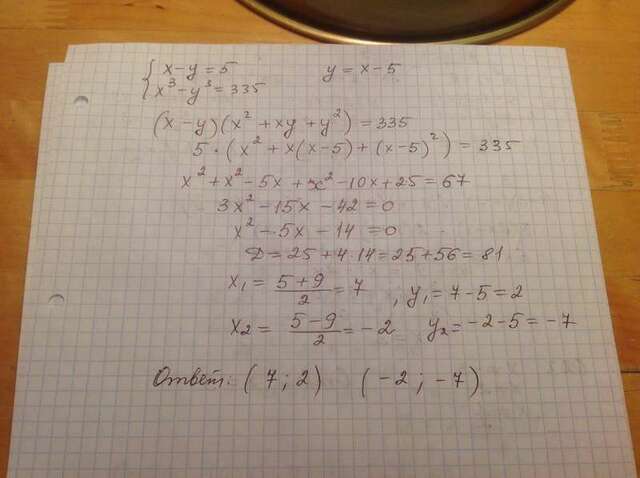 { x - y = 5 y = x - 5
x³ - y³ = 335
(x - y)(x² + xy + y²) = 335
5 · (x² + x(x-5) + (x-5)²) = 335
x² + x² - 5x + x² - 10x + 25 = 67
3x² - 15x - 42 = 0
x² - 5x - 14 = 0
D = 25 + 4·14 = 25 + 56 = 81
x₁ = (5+9)/2 = 7 , y₁ = 7 - 5 = 2
x₂ = (5-9)/2 = -2 y₂ = -2 - 5 = -7
Ответ: (7; 2) (-2; -7)